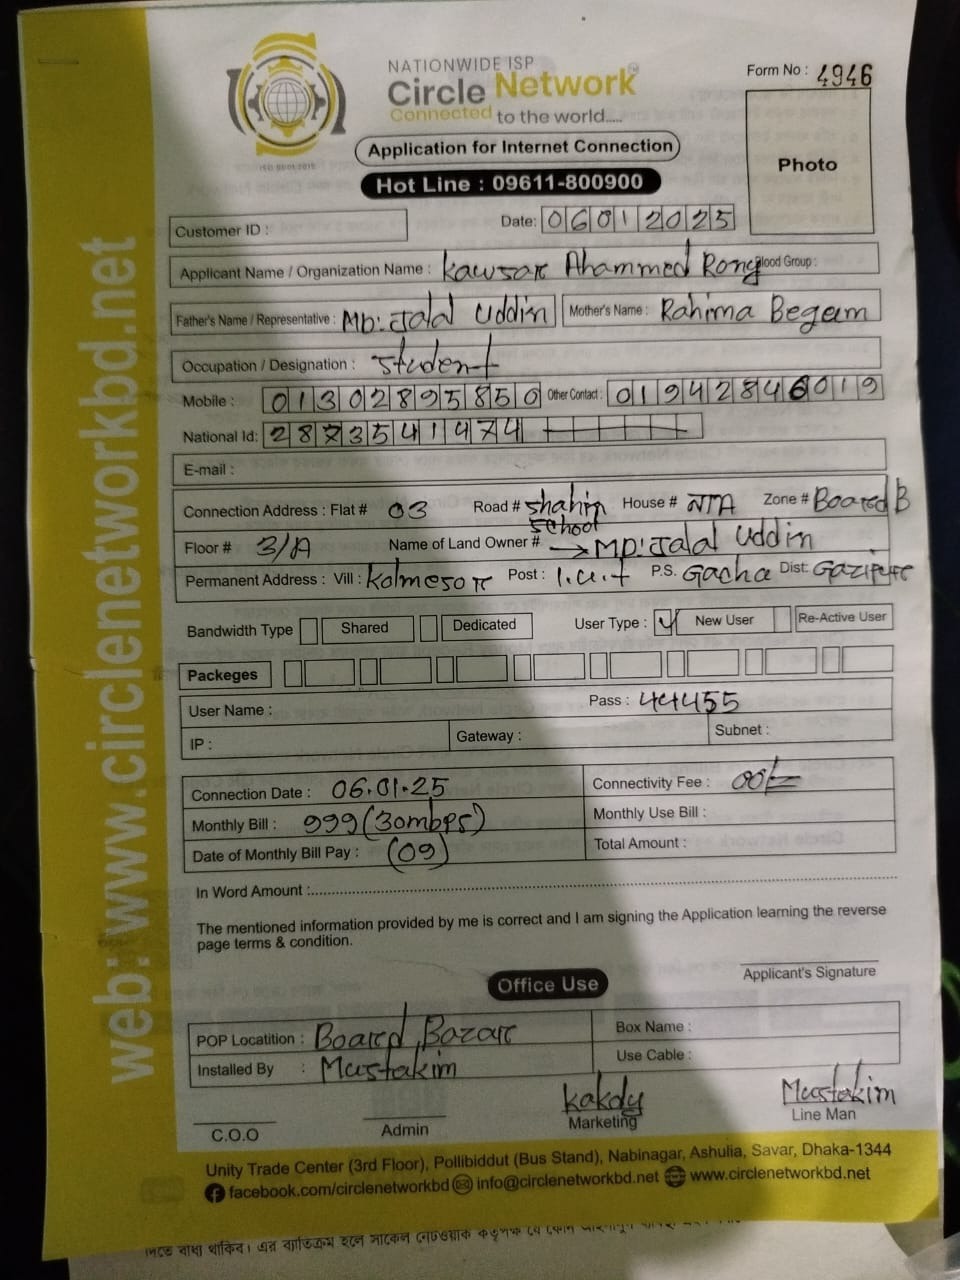 NATIONWIDE ISP
Circle Network
Connected to the world.....
Form No : 4946
Application for Internet Connection
Photo
Hot Line : 09611-800900
Customer ID :
Date: 06012025
Applicant Name / Organization Name : Kawsar Ahammed Rony Blood Group :
Father's Name / Representative : MD: Jalal Uddin Mother's Name : Rahima Begum
Occupation / Designation : Student
Mobile : 01302895850 Other Contact : 01942846019
National Id: 2873541474
E-mail :
Connection Address : Flat # 03 Road # Shahin School House # N/A Zone # Board B
Floor # 3/A Name of Land Owner # → MD: Jalal Uddin
Permanent Address : Vill : Kolmesor Post : I.U.T P.S. Gacha Dist: Gazipur
Bandwidth Type Shared Dedicated User Type : ✓ New User Re-Active User
Packeges
User Name : Pass : 44455
IP : Gateway : Subnet :
Connection Date : 06.01.25 Connectivity Fee : 00/=
Monthly Bill : 999 (30mbps) Monthly Use Bill :
Date of Monthly Bill Pay : (09) Total Amount :
In Word Amount :
The mentioned information provided by me is correct and I am signing the Application learning the reverse
page terms & condition.
Applicant's Signature
Office Use
POP Locatition : Board Bazar Box Name :
Installed By : Mustakim Use Cable :
Kakdy Mustakim
C.O.O Admin Marketing Line Man
Unity Trade Center (3rd Floor), Pollibiddut (Bus Stand), Nabinagar, Ashulia, Savar, Dhaka-1344
facebook.com/circlenetworkbd info@circlenetworkbd.net www.circlenetworkbd.net
web: www.circlenetworkbd.net
থাকিব। এর ব্যতিক্রম হলে সার্কেল নেটওয়ার্ক